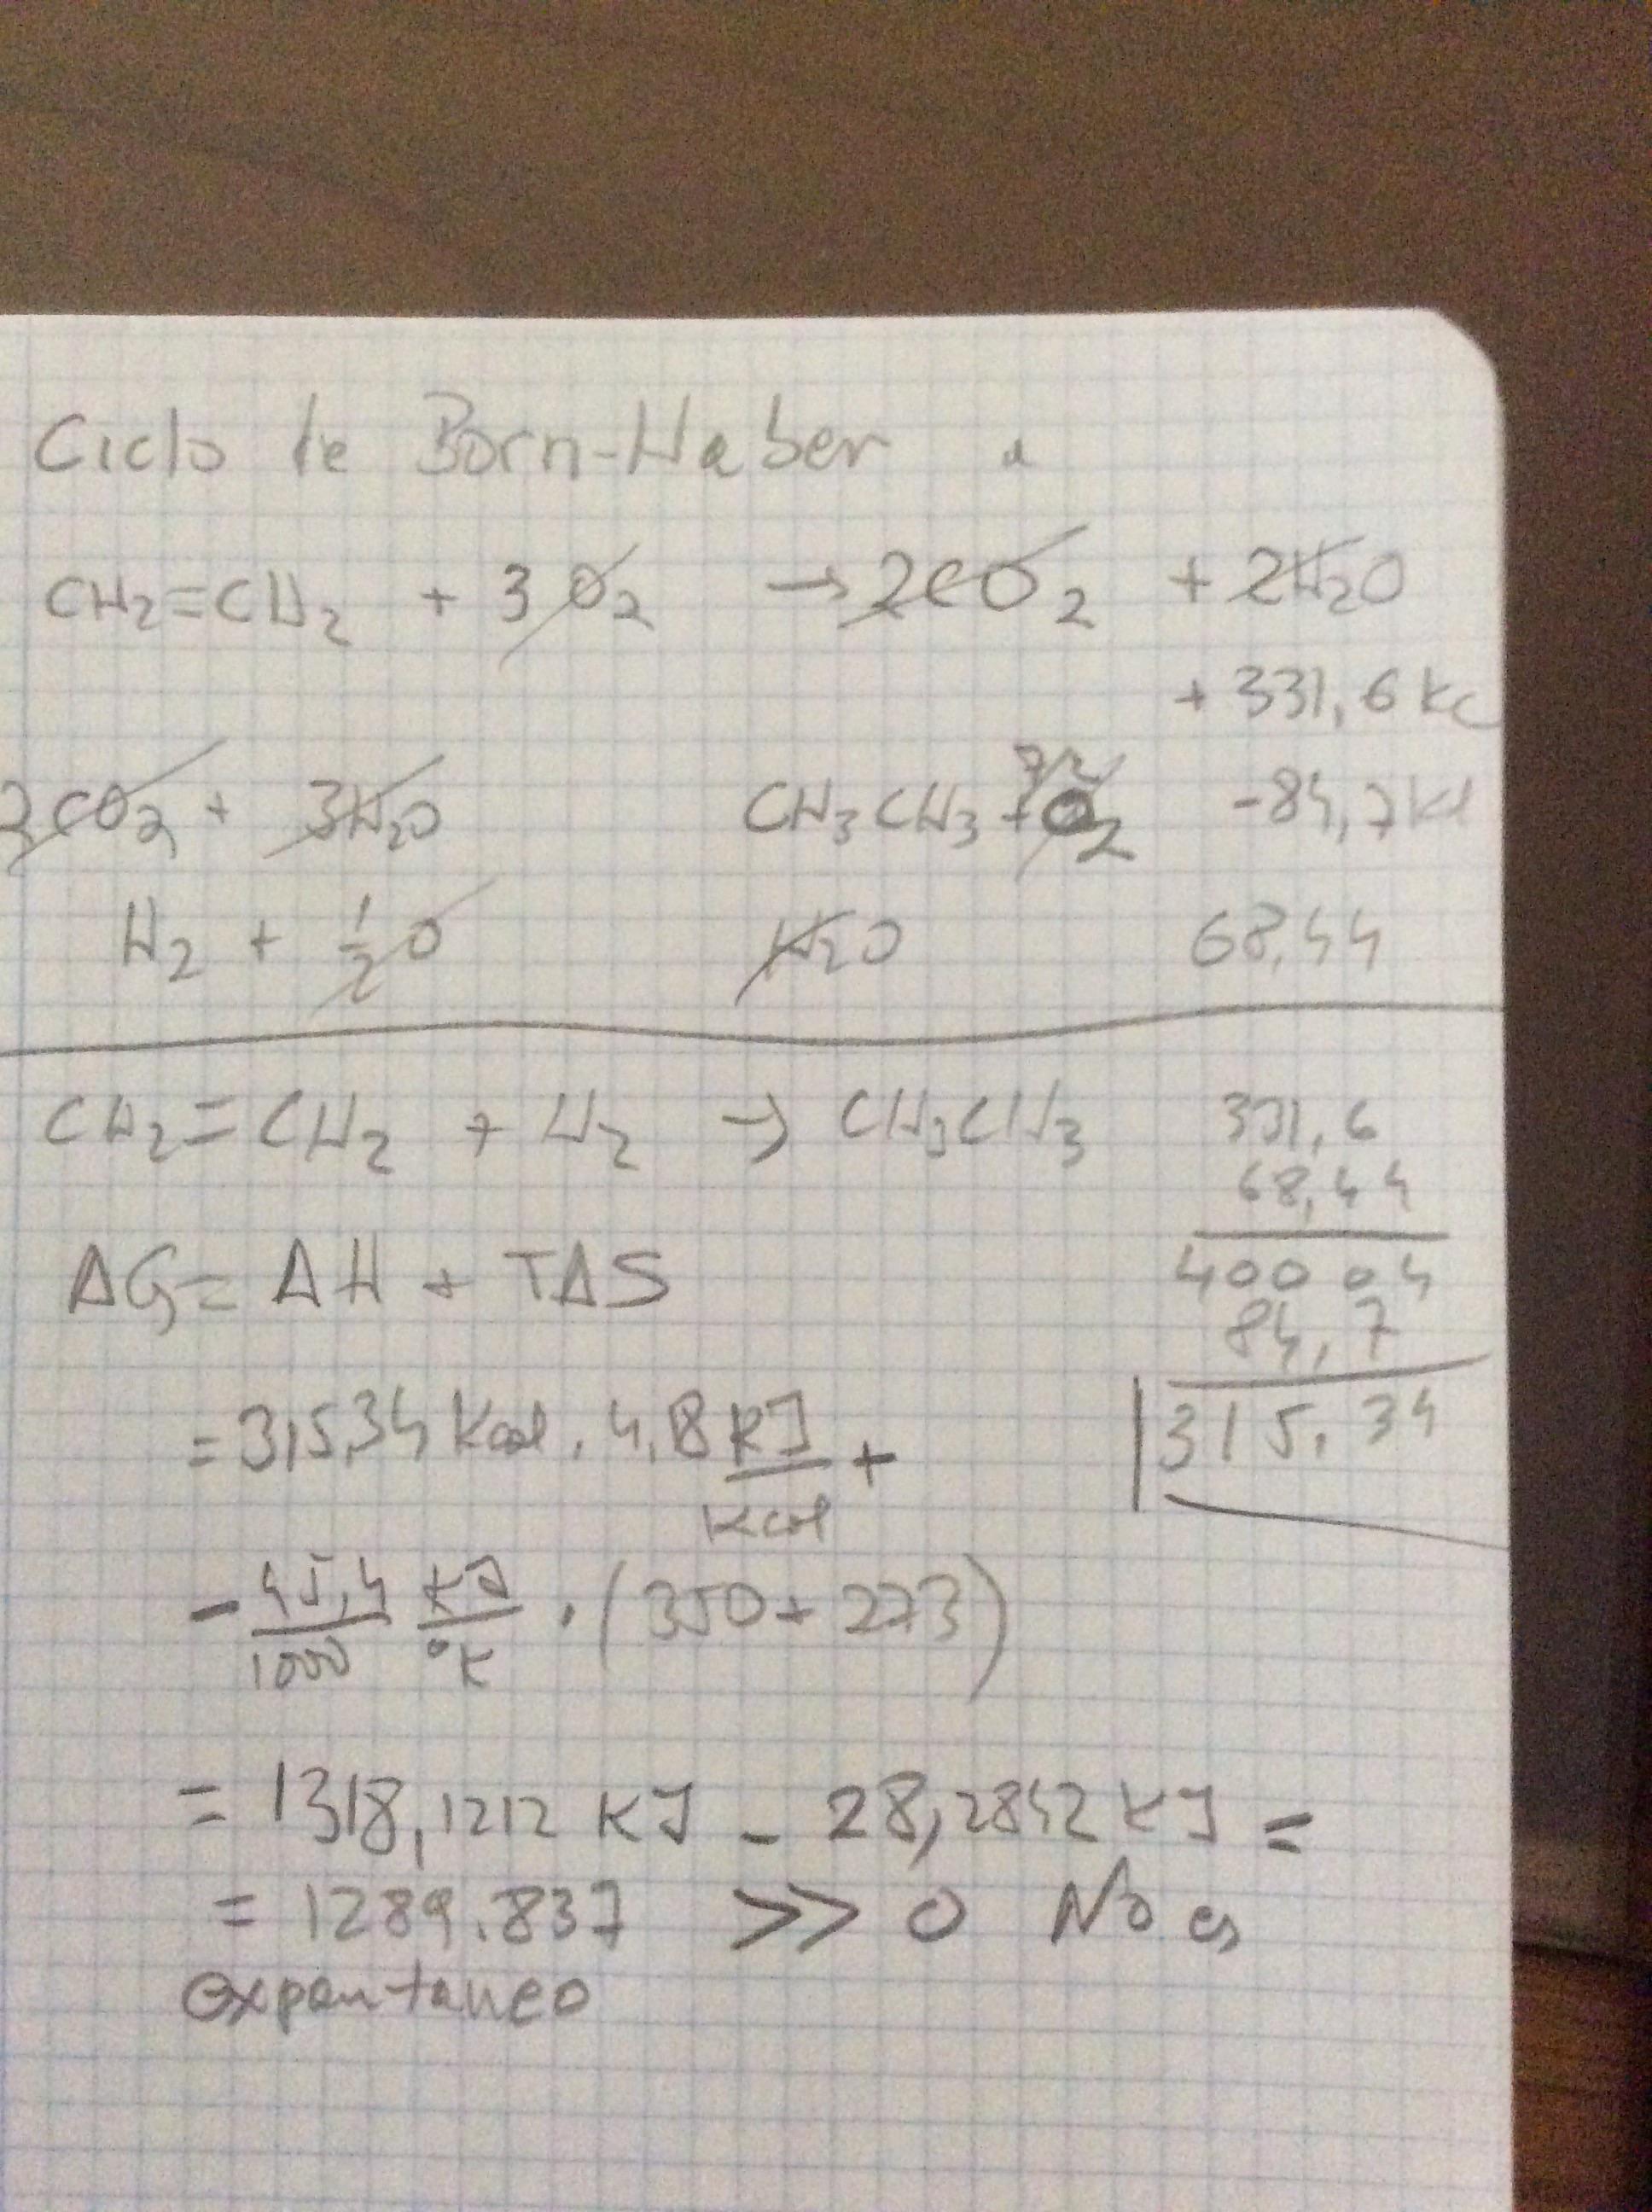 Ciclo de Born-Haber a
CH₂=CH₂ + 3 O₂ → 2CO₂ + 2H₂O
+ 331,6 Kc
2CO₂ + 3H₂O CH₃CH₃ + 7/2 O₂ -84,7 Kl
H₂ + 1/2 O H₂O 68,44
CH₂=CH₂ + H₂ → CH₃CH₃ 331,6
68,44
ΔG = ΔH + TΔS 400 04
84,7
= 315,34 Kcal . 4,18 KJ/Kcal + 315.34
- 45,4/1000 KJ/°K . (350 + 273)
= 1318,1212 KJ - 28,2842 KJ =
= 1289.837 >> 0 No es
expontaneo